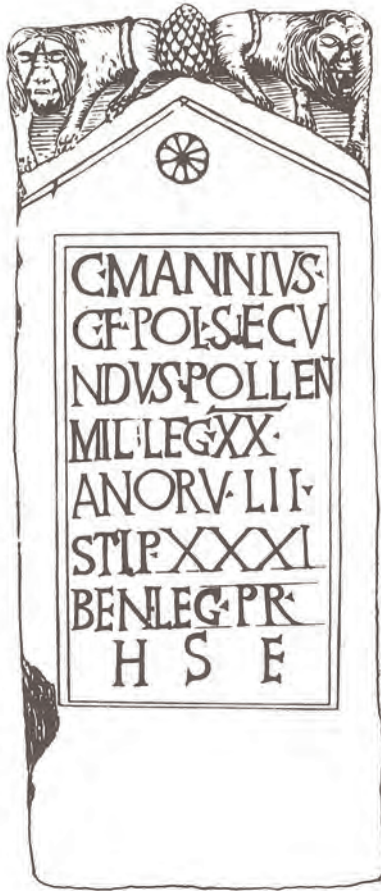 C·MANNIVS·
C·F·POL·SECV
NDVS·POLLEN
MIL·LEG·XX·
ANORV·LII·
STIP·XXXI
BEN·LEG·PR
H S E